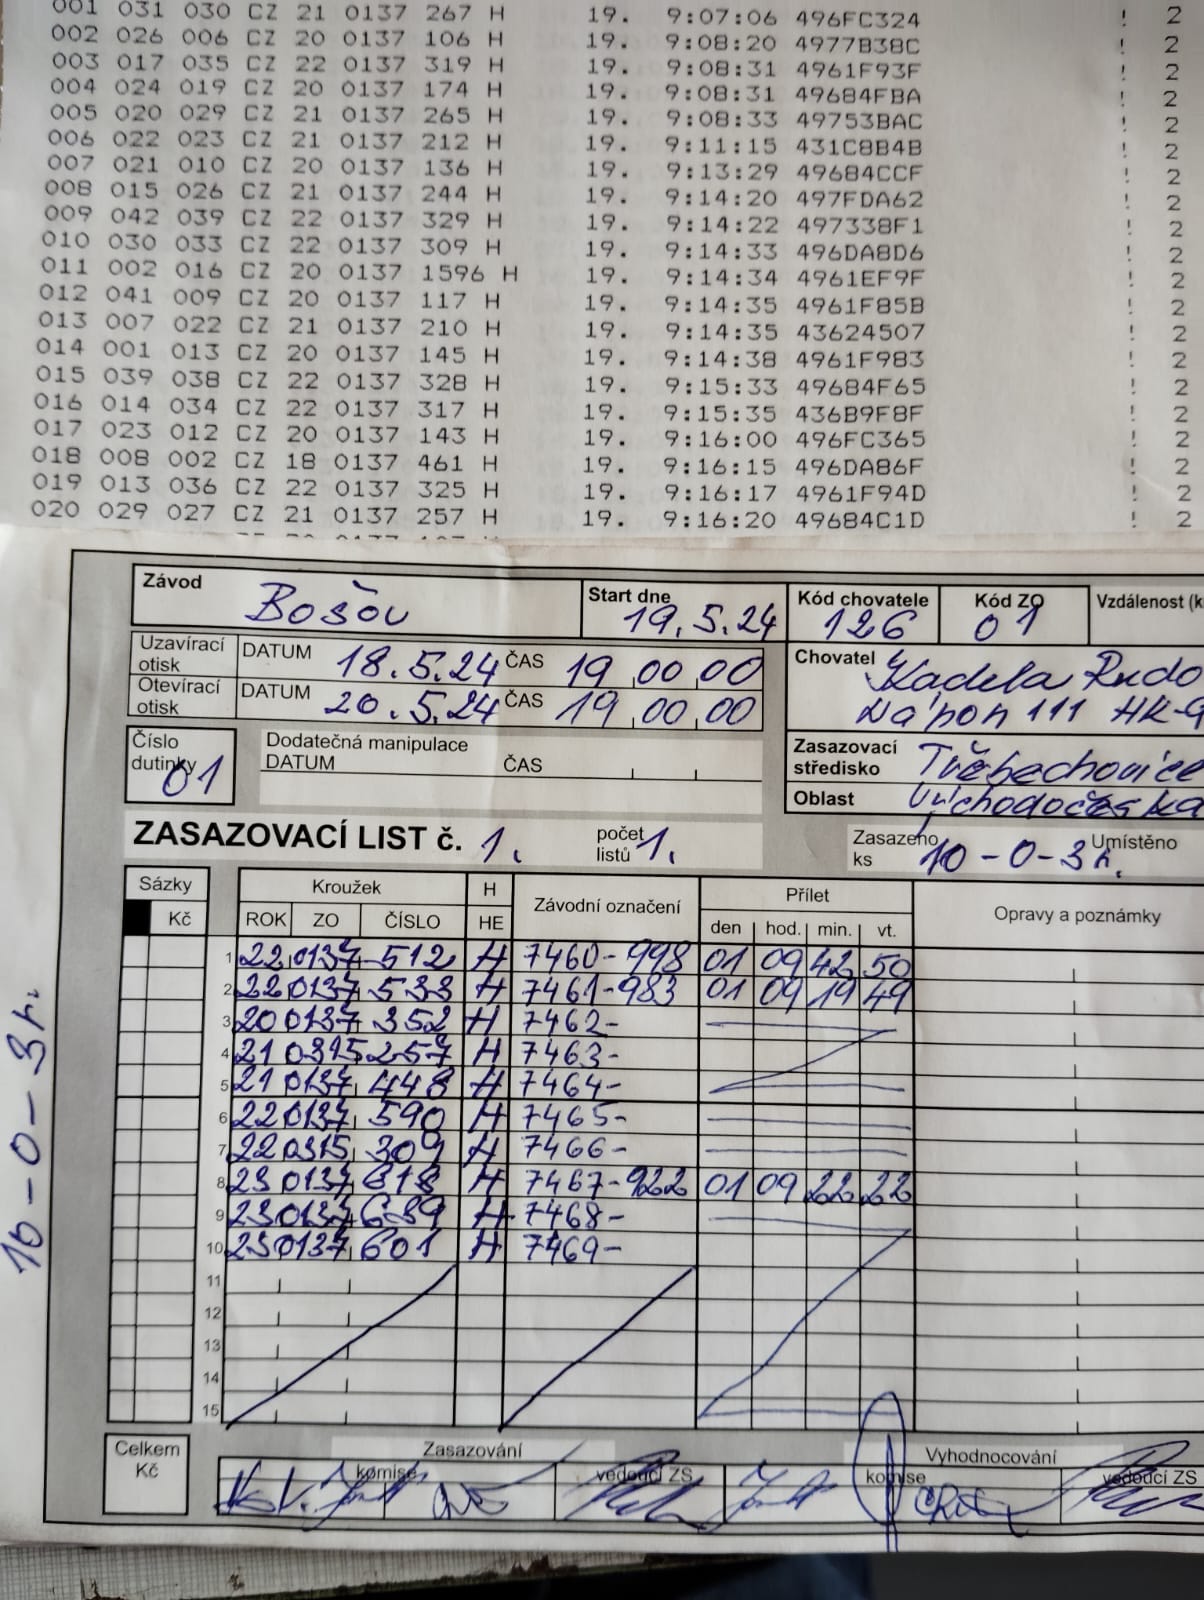 001 031 030 CZ 21 0137 267 H 19. 9:07:06 496FC324 ! 2
002 026 006 CZ 20 0137 106 H 19. 9:08:20 4977B38C ! 2
003 017 035 CZ 22 0137 319 H 19. 9:08:31 4961F93F ! 2
004 024 019 CZ 20 0137 174 H 19. 9:08:31 49684FBA ! 2
005 020 029 CZ 21 0137 265 H 19. 9:08:33 49753BAC ! 2
006 022 023 CZ 21 0137 212 H 19. 9:11:15 431C8B4B ! 2
007 021 010 CZ 20 0137 136 H 19. 9:13:29 49684CCF ! 2
008 015 026 CZ 21 0137 244 H 19. 9:14:20 497FDA62 ! 2
009 042 039 CZ 22 0137 329 H 19. 9:14:22 497338F1 ! 2
010 030 033 CZ 22 0137 309 H 19. 9:14:33 496DA8D6 ! 2
011 002 016 CZ 20 0137 1596 H 19. 9:14:34 4961EF9F ! 2
012 041 009 CZ 20 0137 117 H 19. 9:14:35 4961F85B ! 2
013 007 022 CZ 21 0137 210 H 19. 9:14:35 43624507 ! 2
014 001 013 CZ 20 0137 145 H 19. 9:14:38 4961F983 ! 2
015 039 038 CZ 22 0137 328 H 19. 9:15:33 49684F65 ! 2
016 014 034 CZ 22 0137 317 H 19. 9:15:35 436B9F8F ! 2
017 023 012 CZ 20 0137 143 H 19. 9:16:00 496FC365 ! 2
018 008 002 CZ 18 0137 461 H 19. 9:16:15 496DA86F ! 2
019 013 036 CZ 22 0137 325 H 19. 9:16:17 4961F94D ! 2
020 029 027 CZ 21 0137 257 H 19. 9:16:20 49684C1D ! 2
Závod Bošov Start dne 19.5.24 Kód chovatele 126 Kód ZO 01 Vzdálenost (k
Uzavírací otisk DATUM 18.5.24 ČAS 19 00 00
Otevírací otisk DATUM 20.5.24 ČAS 19 00 00
Chovatel Kadela Rudo
Na pon 111 HK-9
Číslo dutinky 01
Dodatečná manipulace
DATUM ČAS
Zasazovací středisko Třebechovice
Oblast Východočeská
ZASAZOVACÍ LIST č. 1. počet listů 1. Zasazeno ks 10-0-3h. Umístěno
Sázky Kroužek H Závodní označení Přílet Opravy a poznámky
Kč ROK ZO ČÍSLO HE den hod. min. vt.
1 22 0137 512 H 7460-998 01 09 42 50
2 22 0137 533 H 7461-983 01 09 19 49
3 20 0137 352 H 7462-
4 21 0315 257 H 7463-
5 21 0137 448 H 7464-
6 22 0137 590 H 7465-
7 22 0315 309 H 7466-
8 23 0137 618 H 7467-922 01 09 22 22
9 23 0137 639 H 7468-
10 23 0137 601 H 7469-
11
12
13
14
15
10-0-3h.
Celkem Kč
Zasazování Vyhodnocování
komise vedoucí ZS komise vedoucí ZS